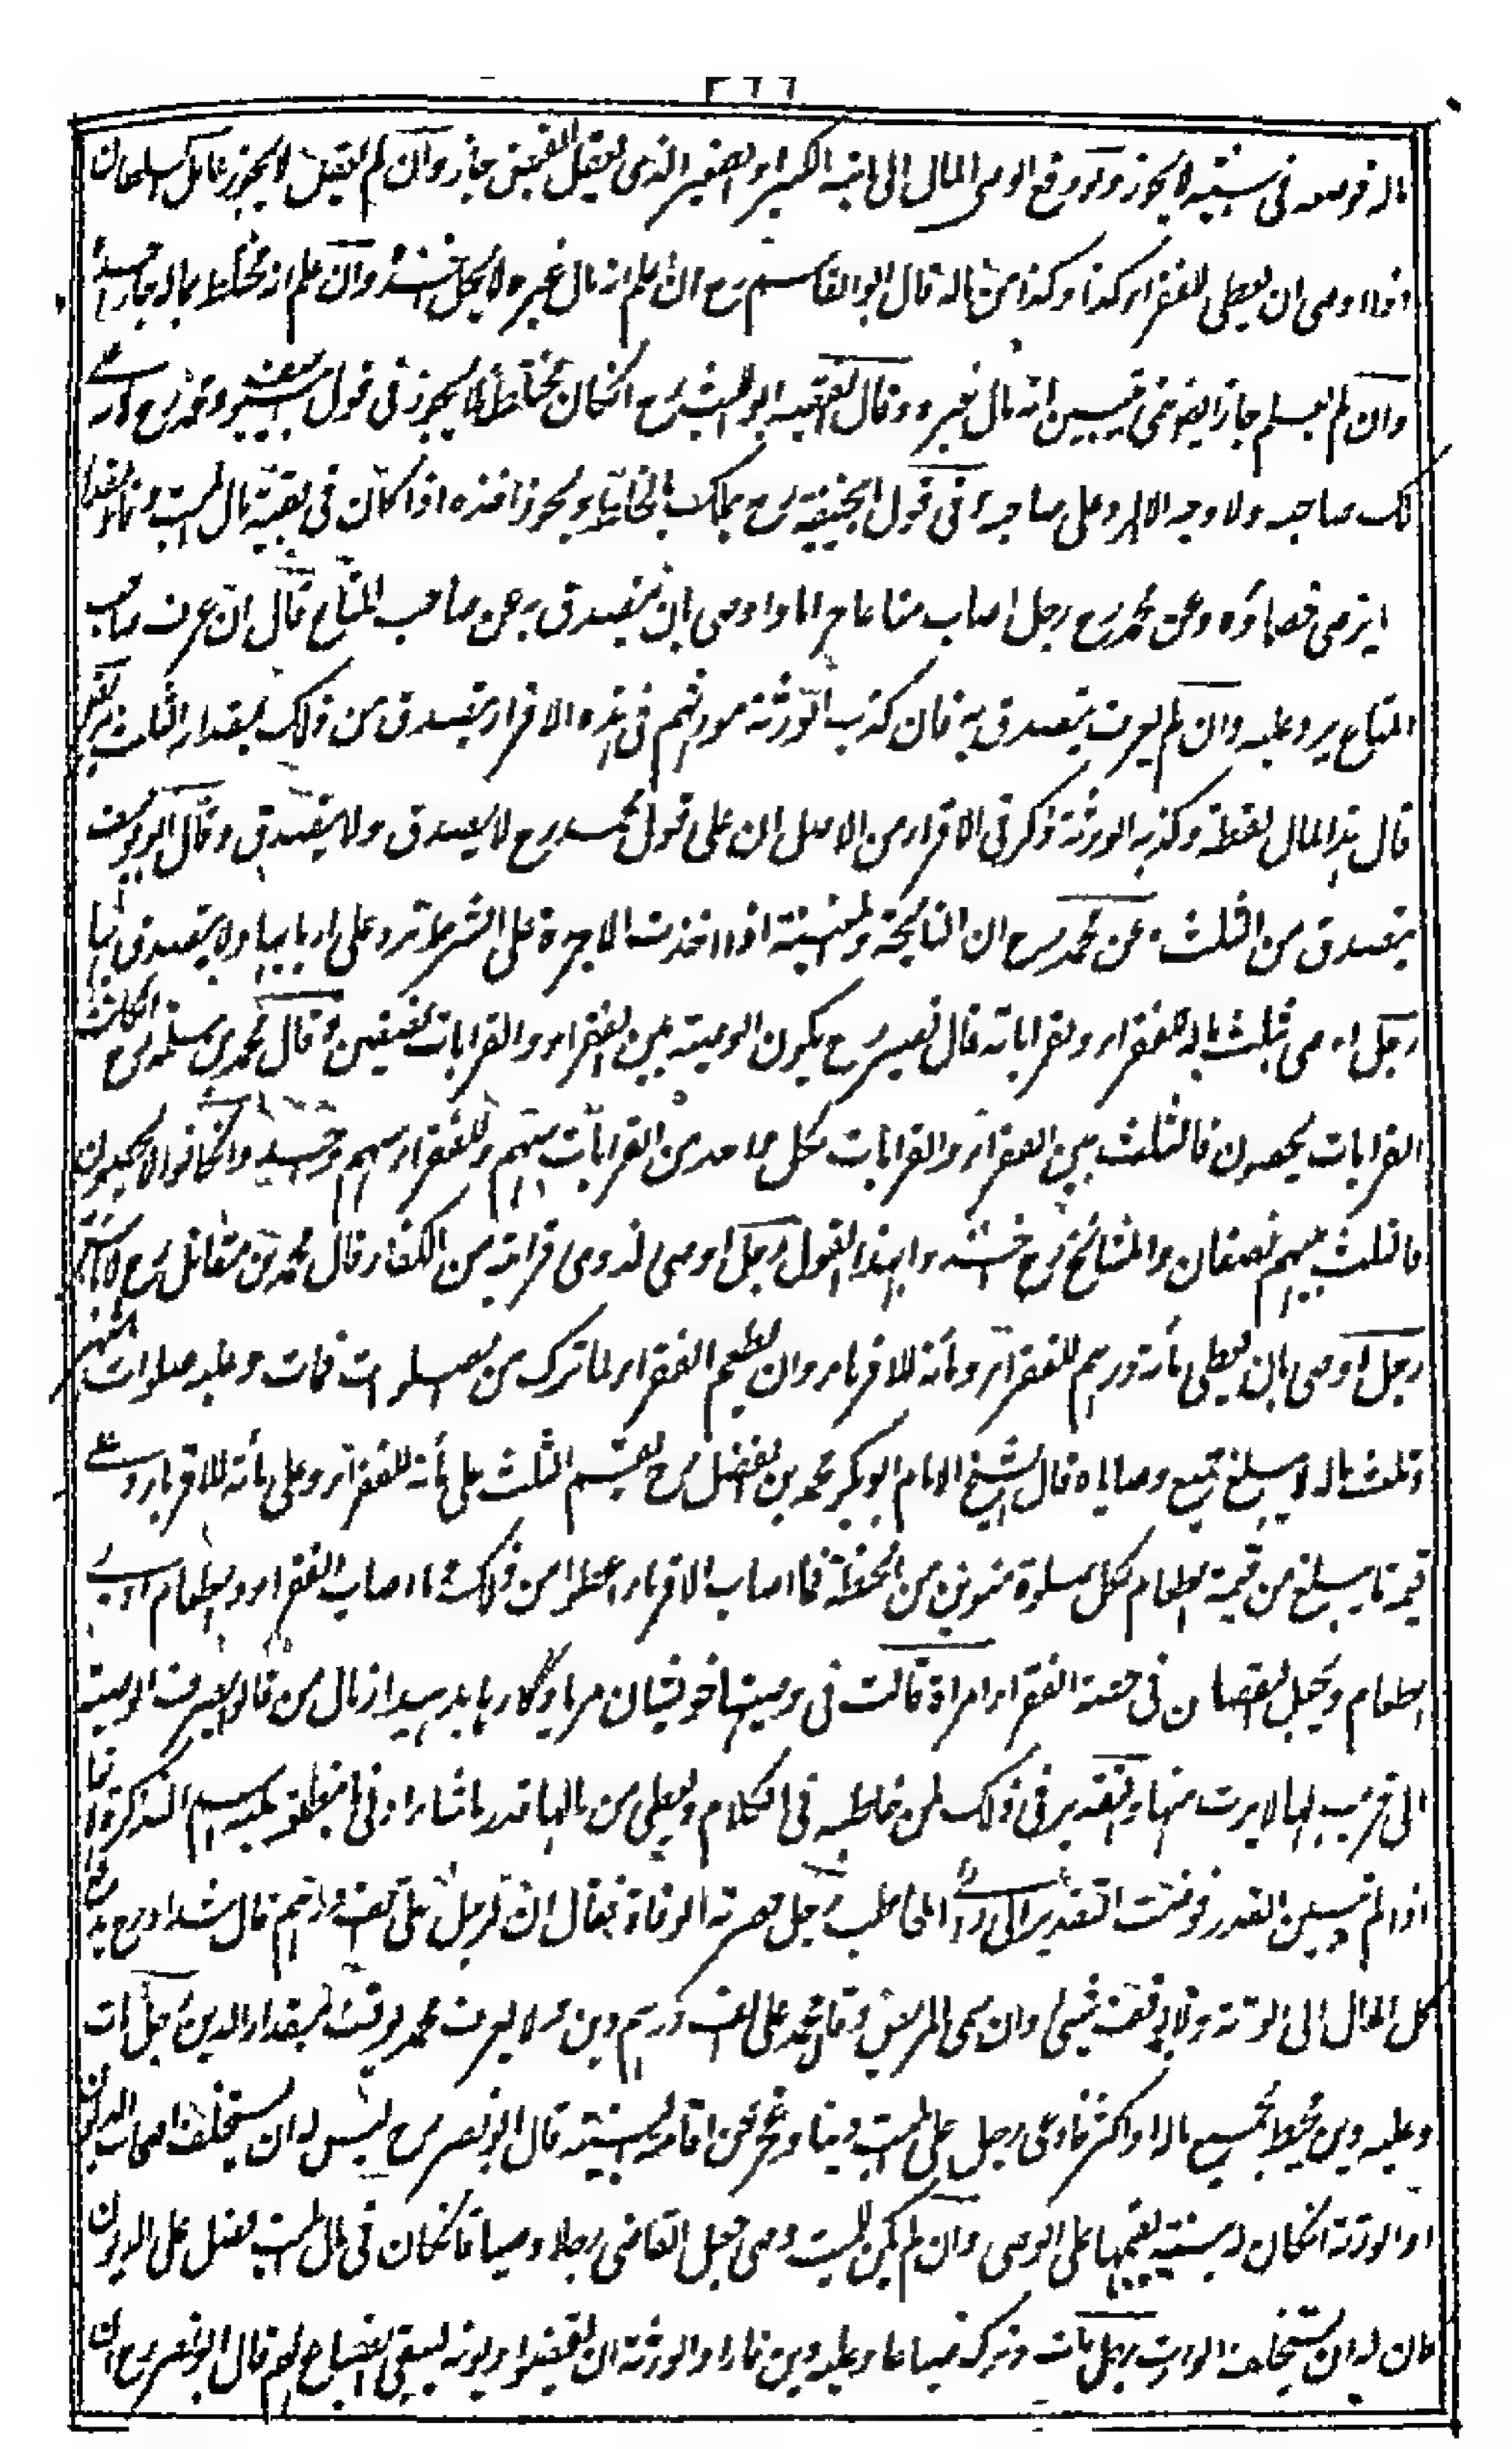 ٣٦٦
ماله فوضعه في سفينة لا يجوز ولو دفع الوصي المال الى ابنه الكبير او الصغير الذي يعقل القبض جاز وان لم يعقل لا يجوز عامل السلطان
اذا اوصى ان يعطى للفقراء كذا وكذا من ماله قال ابو القاسم رح ان علم انه مال غيره لا يحل اخذه وان علم انه مختلط بماله جاز اخذه
وان لم يعلم جاز ايضا حتى يتبين انه مال غيره وقال الفقيه ابو الليث رح انكان مختلطا لا يجوز في قول ومحمد رح لانه على
ملك صاحبه ولا وجه الا الرد على صاحبه وفي قول ابيحنيفة رح يملك بالخلط ويجوز اخذه اذا كان في بقية مال الميت وفاء بمقدار
ما يرضى خصماؤه وعن محمد رح رجل اصاب متاعا حراما واوصى بان يتصدق به عن صاحب المتاع قال ان عرف صاحب
المتاع يرد عليه وان لم يعرف يتصدق به فان كذب الورثة مورثهم في هذه الاقرار يتصدق من ذلك بمقدار الثلث
قال هذا المال لقطة وكذبه الورثة ذكر في الاقرار من الاصل ان على قول محمد رح لا يصدق ولا يتصدق وقال ابو يوسف
يتصدق من الثلث وعن محمد رح ان النائحة والمغنية اذا اخذت الاجرة على الشرط ترد على اربابها ولا يتصدق بها
رجل اوصى بثلث ماله للفقراء ولقراباته قال نصير رح يكون الوصية بين الفقراء والقرابات نصفين وقال محمد بن سلمة رح انكانت
القرابات يحصون فالثلث بين الفقراء والقرابات لكل واحد من القرابات سهم وللفقراء سهم واحد وانكانوا لا يحصون
فالثلث بينهم نصفان والمشائخ رح اخذوا بهذا القول رجل اوصى لذوي قرابته من الكفار قال محمد بن مقاتل رح
رجل اوصى بان يعطى مائة درهم للفقراء ومائة للاقرباء وان يطعم الفقراء لما ترك من الصلوات فمات وعليه صلوات
وثلث ماله لا يبلغ جميع وصاياه قال الشيخ الامام ابو بكر محمد بن الفضل رح يقسم الثلث على مائة للفقراء وعلى مائة للاقرباء وعلى
قيمة ما يبلغ من قيمة الطعام لكل صلوة منوين من الحنطة فما اصاب الاقرباء اعطوا من ذلك وما اصاب الفقراء والطعام
الطعام ويجعل النقصان في حصة الفقراء امراة قالت في وصيتها خويشان مرا يادگارها بدهيد از مال من قالوا يصرف الوصية
الى قريب لها لا يرث منها والتقدير في ذلك لمن خاطبه في الكلام ويعطى من مالها قدر ما شاء ادنى ما ينطلق عليه اسم التذكرة
اذا لم تبين القدر فوضت التقدير الى راى المخاطب رجل حضرته الوفاة فقال ان لرجل علي الف درهم قال شداد رح يدفع
كل المال الى الورثة ولا يوقف شيئ وان سمى المريض وقال لمحمد علي الف درهم دين ولا يعرف محمد يوقف بمقدار الدين رجل مات
وعليه دين يحيط بجميع ماله او اكثر فادعى رجل على الميت دينا وعجز عن اقامة البينة قال ابو نصر رح ليس له ان يستحلف اصحاب الديون
او الورثة انكان له بينة يقيمها على الوصي وان لم يكن للميت وصي جعل القاضي رجلا وصيا فانكان في مال الميت فضل على الديون
كان له ان يستحلف الوارث رجل مات وترك ضياعا وعليه دين فاراد الورثة ان يقضوا ديونه ليبقى الضياع لهم قال ابو نصر رح ان